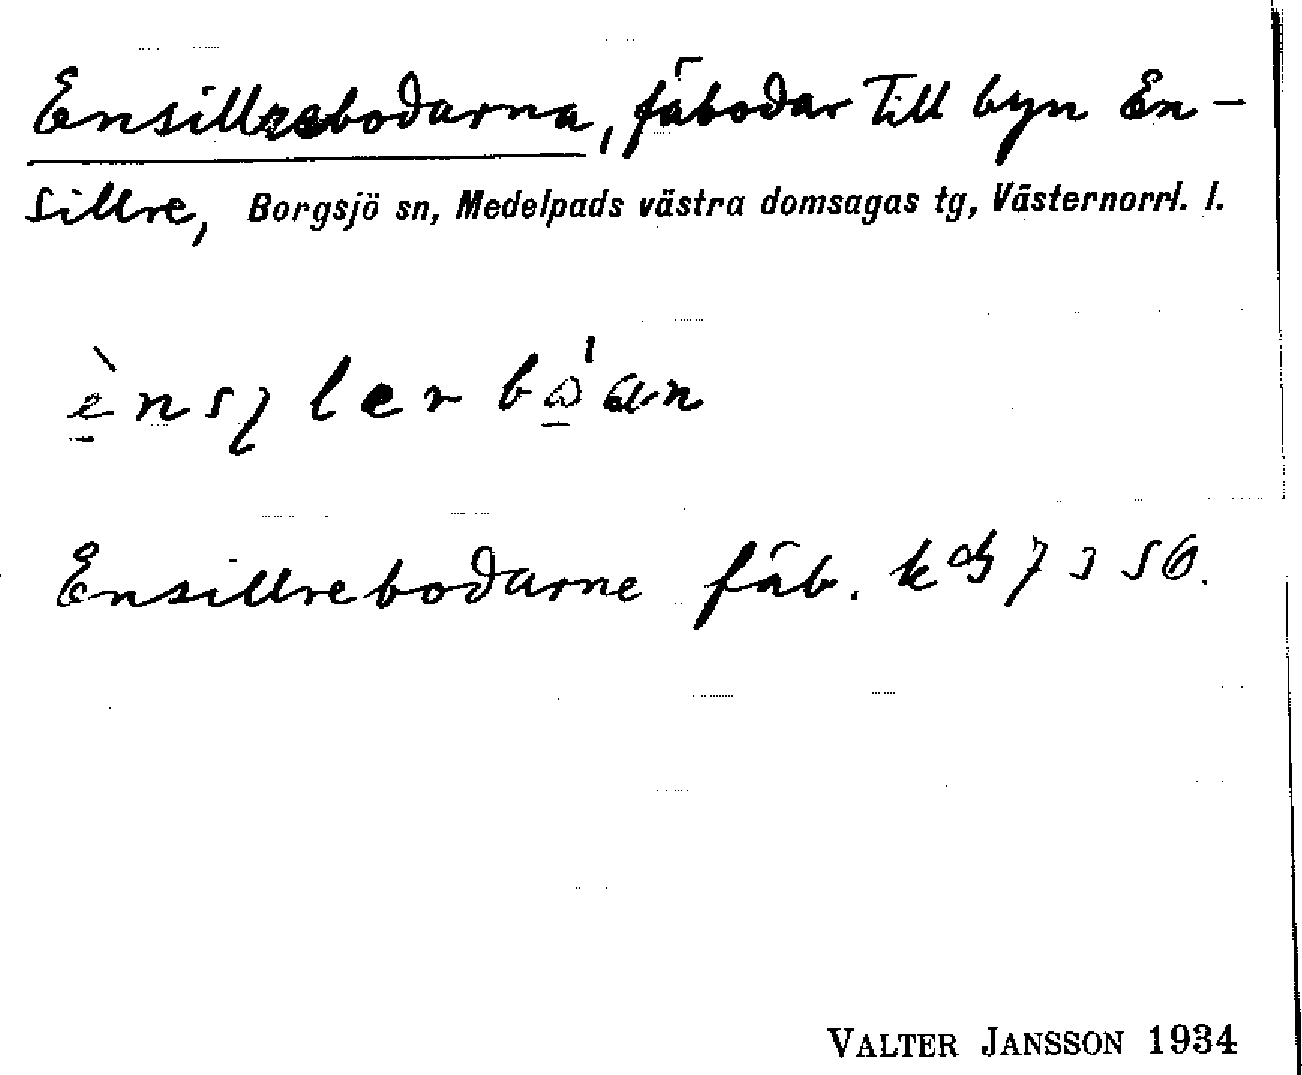 Ensillrebodarna, fäbodar till byn En-
sillre, Borgsjö sn, Medelpads västra domsagas tg, Västernorrl. l.
Ensillrebodarne fäb.
VALTER JANSSON 1934